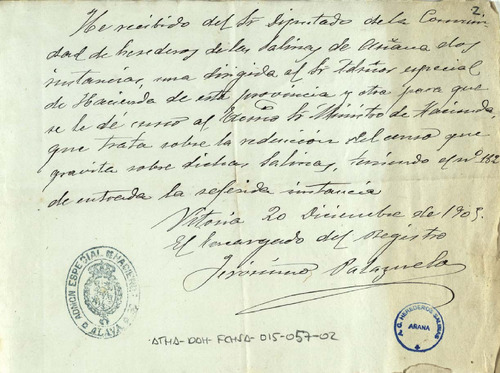 2.
He recibido del Sr Diputado de la Comuni
dad de herederos de las Salinas de Añana dos
instancias, una dirigida al Sr Admor especial
de Hacienda de esta provincia y otra para que
se le dé curso al Excmo Sr Ministro de Hacienda,
que trata sobre la redención del censo que
gravita sobre dichas Salinas, teniendo el nº 162
de entrada la referida instancia
Vitoria 20 Diciembre de 1905
El Encargado del Registro
Jerónimo Palazuelo
ADMON ESPECIAL HACIENDA
ALAVA
A.C. HEREDEROS SALINAS
AÑANA
ATHA-DAH-FCHSA-015-057-02